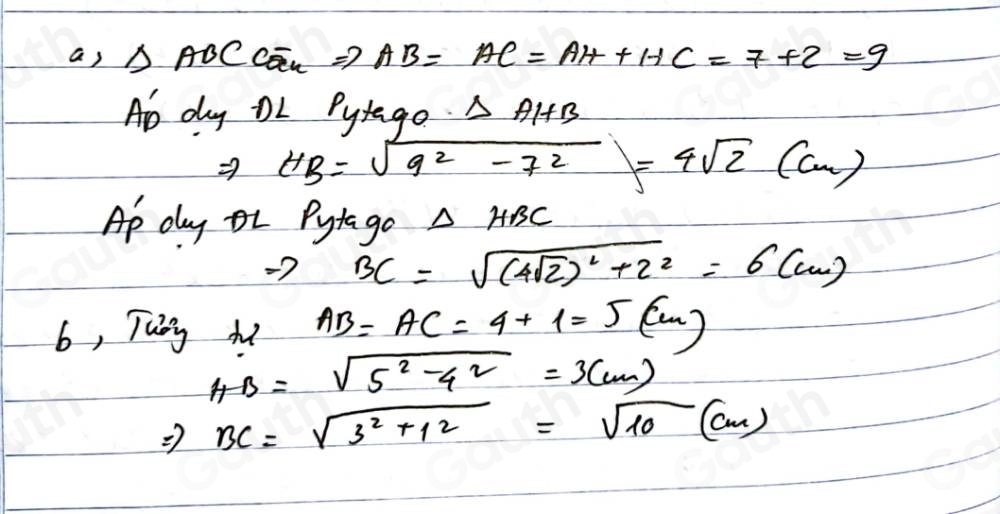 a, Δ ABC cân => AB = AC = AH + HC = 7 + 2 = 9
Áp dụg ĐL Pytago Δ AHB
=> HB = √(9² - 7²) = 4√2 (cm)
Áp dụg ĐL Pytago Δ HBC
=> BC = √((4√2)² + 2²) = 6 (cm)
b, Tương tự AB = AC = 4 + 1 = 5 (cm)
HB = √(5² - 4²) = 3 (cm)
=> BC = √(3² + 1²) = √10 (cm)
Gauth